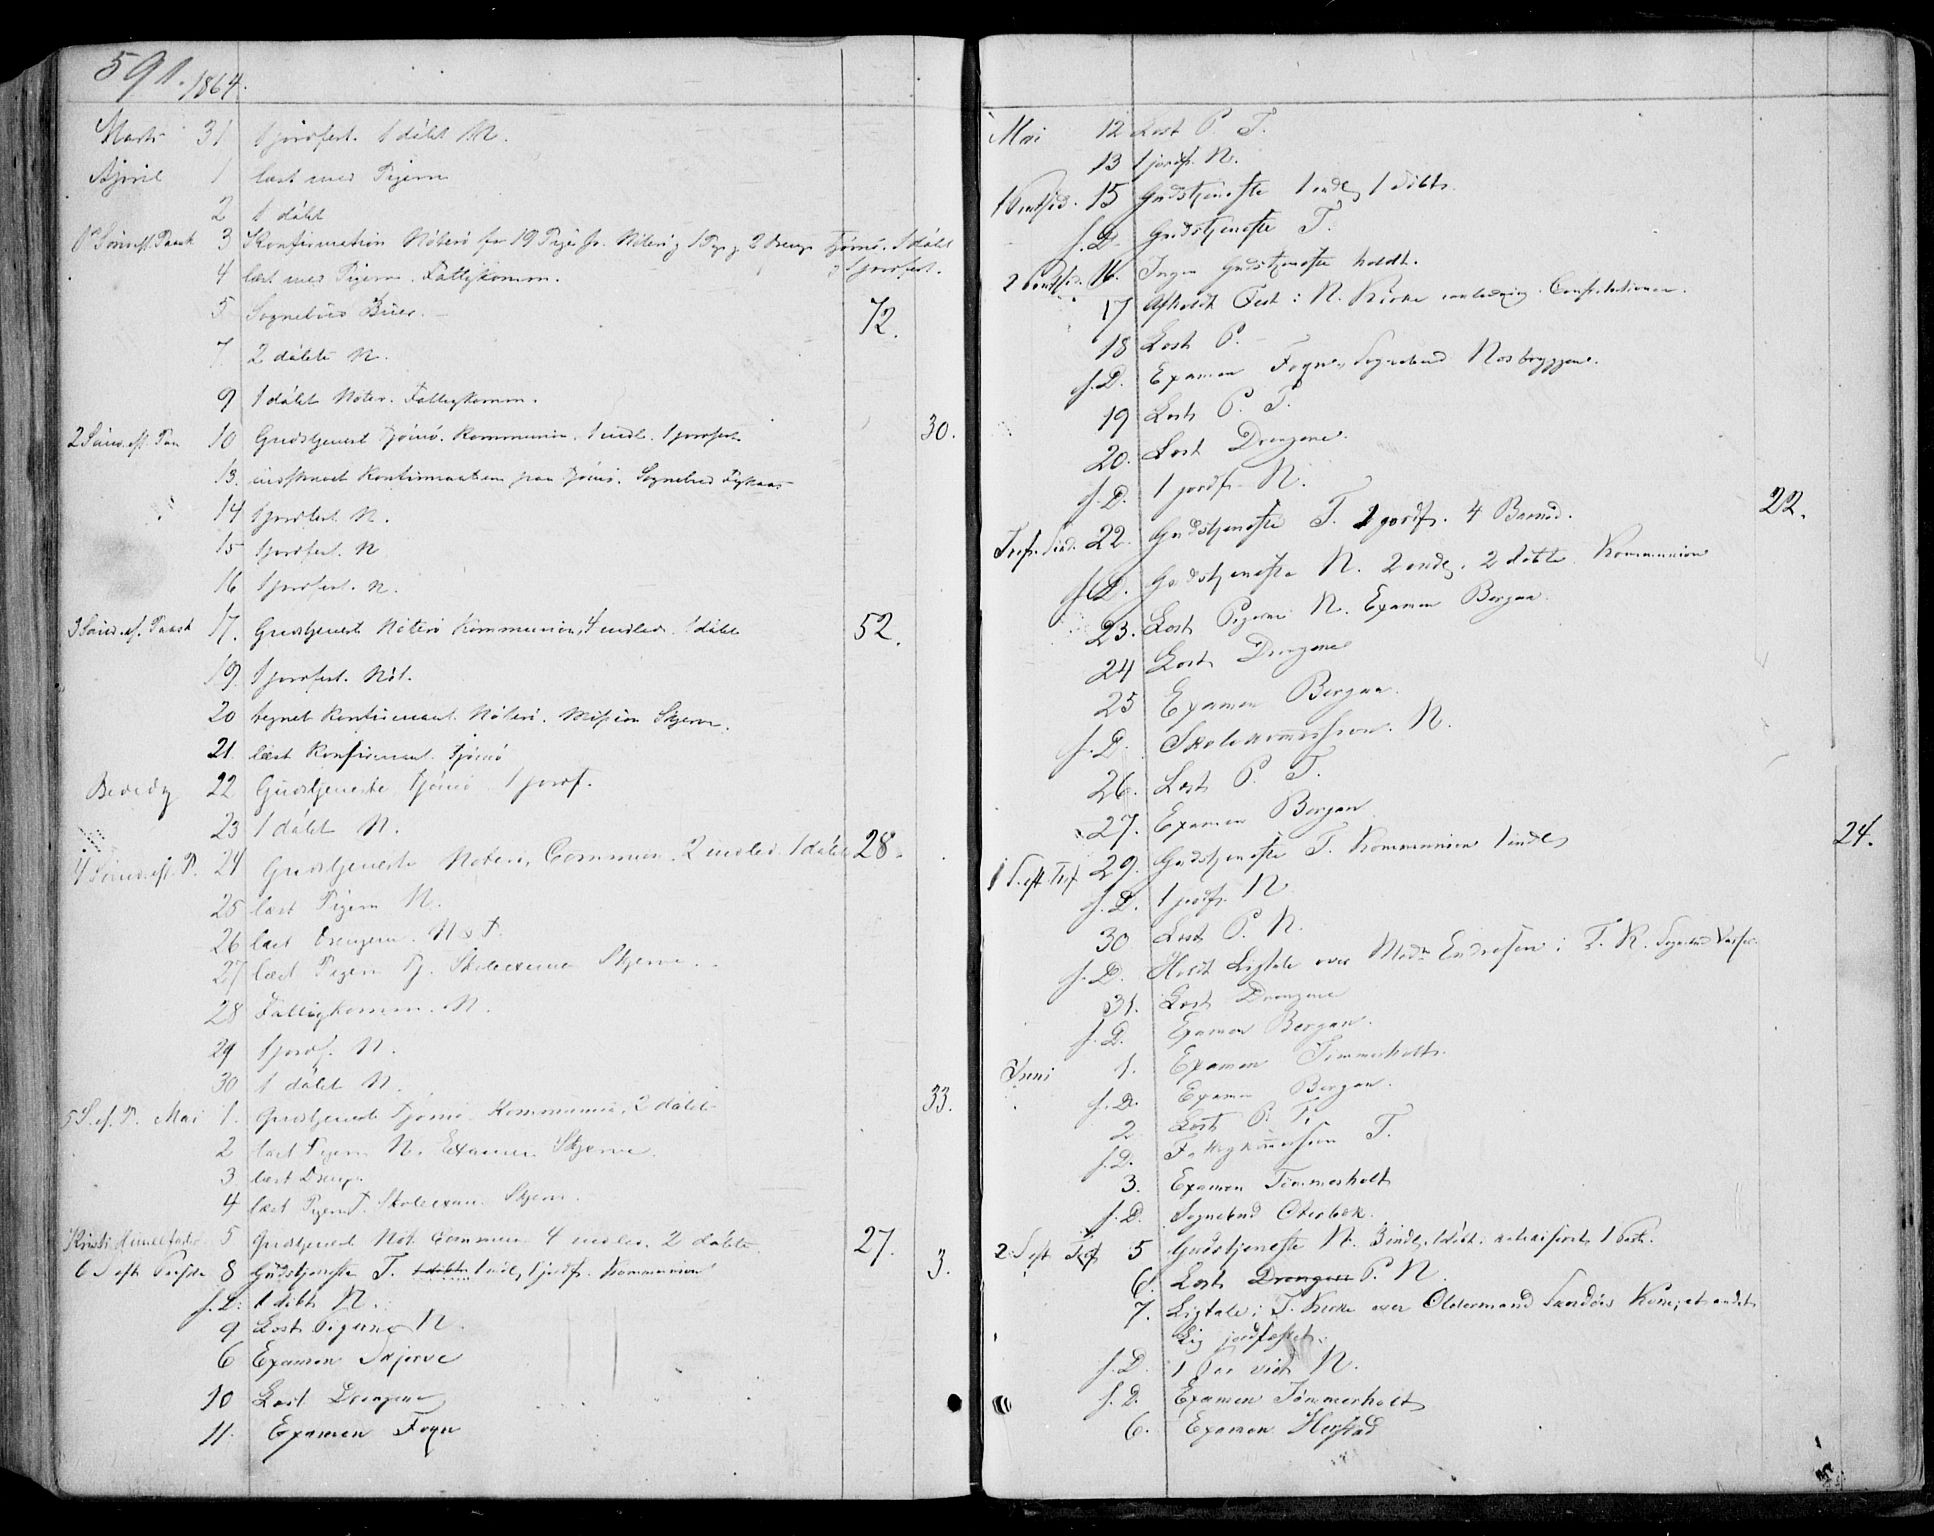 591. 1864.
Marts 31 1 jordfest. 1 døbt N.
April 1 læst med Pigern
2 1 døbt
1 Sønd. eft. Paask 3 Konfirmation Nøterø for 19 Piger fr. Nøterø, 1 Pige, 2 Drenge Tjømø. 1 døbt
1 jordfest.
4 læst med Pigern. Fattigkomm.
5 Sognebud Buer. 72.
7. 2 døbte N.
9 1 døbt Nøter. Fattigkomm.
2 Sønd. eft. Paa 10 Gudstjenest Tjømø. Kommunion. 1 indl. 1 jordfest 30.
13. indskrevet Konfirmanterne paa Tjømø. Sognebud
14 1 jordfest. N.
15 1 jordfest. N
16 1 jordfest. N.
3 Sønd. ef. Paask 17. Gudstjeneste Nøterø Kommunion, 4 indled. 1 døbt 52.
19. 1 jordfest. Nøt.
20 tegnet Konfirmant. Nøterø. Mission Skjerve.
21 læst Konfirman. Tjømø
Bededag 22 Gudstjeneste Tjømø 1 jordf.
23 1 døbt N.
4 Sønd. eft. P. 24 Gudstjeneste Nøterø, Commun. 2 indled. 1 døbt 28.
25 læst Pigern N.
26 læst Drengern. N & T.
27 læst Pigern Tj. Skoleexamen Skjerve.
28 Fattigkomm. N.
29 1 jordf. N.
30 1 døbt N.
5 S. ef. P. Mai 1. Gudstjenest Tjømø. Kommunion, 2 døbt 33.
2 læst Pigern N. Examen Skjerve.
3 læst Drenge.
4 læst Pigern T. Skoleexam. Skjerv.
Kristi Himmelfartsd. 5 Gudstjenest Nøt. Commun 4 indled. 2 døbte 27.
6 S eft Paaske 8 Gudstjeneste T. 1 døbt 1 indl, 1 jordf. Kommunion 3.
s. D. 1 døbt N.
9 Læst Pigerne N.
6 Examen Skjerve
10 Læst Drengene
11. Examen Fogn
Mai 12 Læst P. T.
13 1 jordf. N.
1 Pintsed. 15 Gudstjeneste 1 indl, 1 døbt.
s. D. Gudstjeneste T.
2 Pintsed. 16. Ingen Gudstjeneste holdt.
17 Afholdt Fest i N. Kirke i anledning Constitutionen.
18 Læst P.
s. D. Examen Fogn, Sognebud Nesbryggen.
19 Læst P. T.
20. Læst Drengene.
s. D. 1 jordf. N.
Tref. Sønd. 22. Gudstjeneste T. 2 jordf. 4 Barned. 22.
s. D. Gudstjeneste N. 2 indl, 2 døbte Kommunion
23. Læst Pigerne N. Examen Bergan
24 Læst Drengene
25 Examen Bergan.
s. D. Skolekommission. N.
26. Læst P. T.
27. Examen Bergan
1 S. eft. Tref 29. Gudstjeneste T. Kommunion 1 indl, 24.
s. D. 1 jordf. N
30 Læst P. N.
s. D. Holdt Ligtale over Mad. Endresen i T. K. Sognebud
31. Læst Drengene
s. D. Examen Bergan.
Juni 1. Examen Tømmerholt.
s. D. Examen Bergan.
2 Læst P. T.
s. D. Fattigkommission T.
3. Examen Tømmerholt
s. D. Sognebud Oterbek.
2 S eft Tref 5 Gudstjeneste N. 3 indl, 1 døbt, 1 Par.
6. Læst Drengene P. N.
7. Ligtale i T. Kirke over Oldermand Sundøs Kone, et andet
Lig jordfæstet.
s. D. 1 Par viet N.
s. D. Examen Tømmerholt
6. Examen Herstad